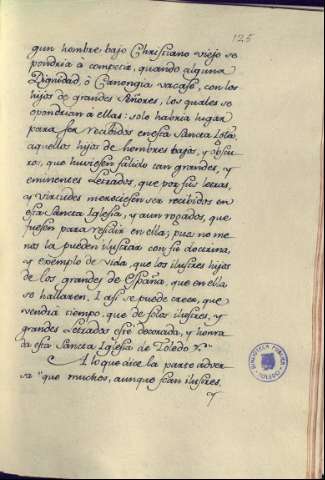 125
gun hombre bajo Christiano viejo se
pondria à competir, quando alguna
Dignidad, ò Canongia vacase, con los
hijos de grandes Señores, los quales se
opondrian à ellas: solo habria lugar
para ser recibidos en esta Sancta Iglã
aquellos hijos de hombres bajos, y obscu-
ros, que huviesen salido tan grandes, y
eminentes Letrados, que por sus letras,
y virtudes mereciesen ser recibidos en
esta Sancta Iglesia, y aun rogados, que
fuesen para residir en ella; pues no me-
nos la pueden ilustrar con su doctrina,
y exemplo de vida, que los ilustres hijos
de los grandes de España, que en ella
se hallaren, I asi se puede creer, que
vendrà tiempo, que de solos ilustres, y
grandes Letrados estè decorada, y honra-
da esta Sancta Iglesia de Toledo
A lo que dice la parte adver-
sa "que muchos, aunque sean ilustres,
y
BIBLIOTECA PUBLICA
TOLEDO